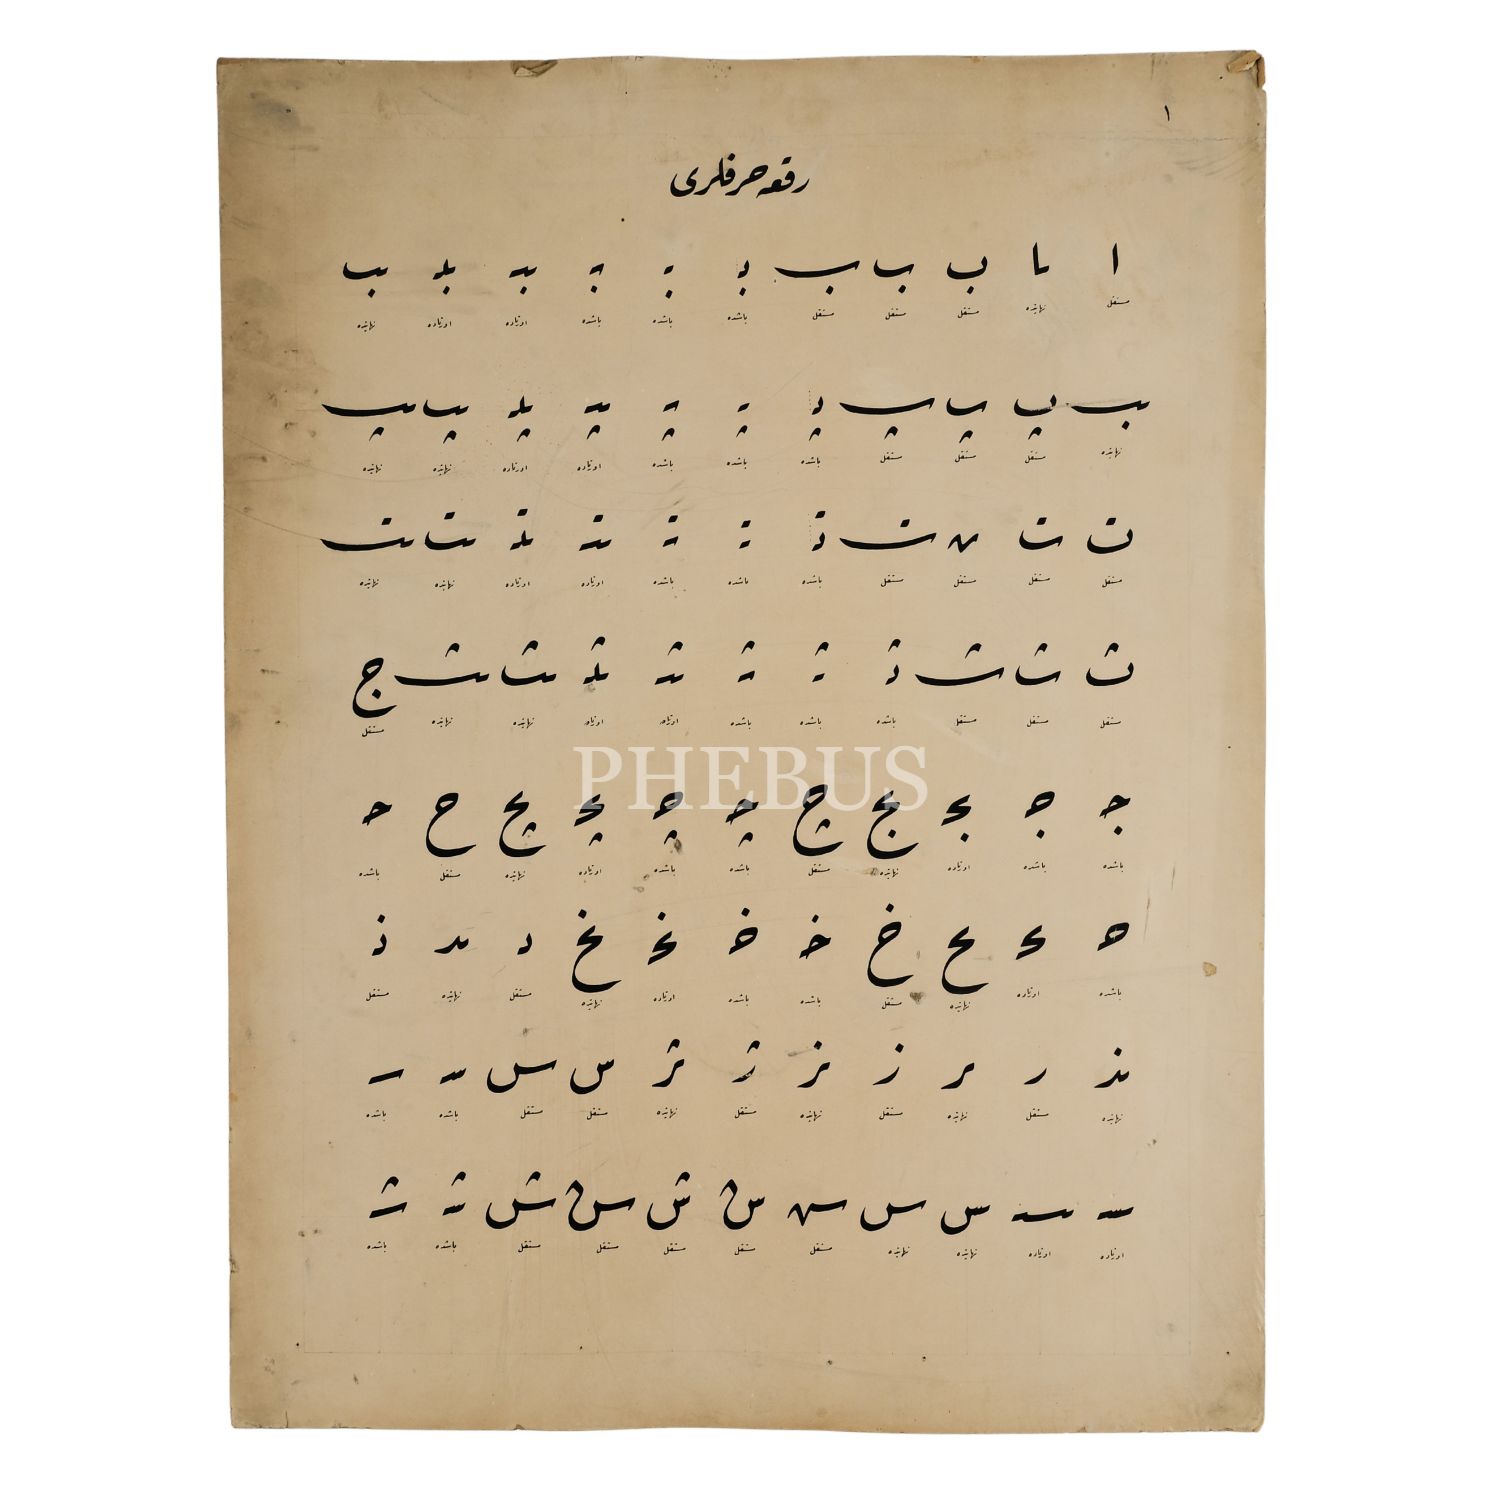 ١
رقعه حرفلری
ا ـا ب ب ب بـ بـ بـ ـبـ ـبـ ـب
مستقل نهايتده مستقل مستقل مستقل باشده باشده باشده اورتاده اورتاده نهايتده
ـب پ پ پ پـ پـ پـ ـپـ ـپـ ـپ ـپ
نهايتده مستقل مستقل مستقل باشده باشده باشده اورتاده اورتاده نهايتده نهايتده
ت ت ت ت تـ تـ تـ ـتـ ـتـ ـت ـت
مستقل مستقل مستقل مستقل باشده باشده باشده اورتاده اورتاده نهايتده نهايتده
ث ث ث ثـ ثـ ثـ ـثـ ـثـ ـث ـث ج
مستقل مستقل مستقل باشده باشده باشده اورتاده اورتاده نهايتده نهايتده مستقل
PHEBUS
جـ جـ ـجـ ـج چ چـ چـ ـچـ ـچ ح حـ
باشده باشده اورتاده نهايتده مستقل باشده باشده اورتاده نهايتده مستقل باشده
حـ ـحـ ـح خ خـ خـ ـخـ ـخ د ـد ذ
باشده اورتاده نهايتده مستقل باشده باشده اورتاده نهايتده مستقل نهايتده مستقل
ـذ ر ـر ز ـز ژ ـژ س س سـ سـ
نهايتده مستقل نهايتده مستقل نهايتده مستقل نهايتده مستقل مستقل باشده باشده
ـسـ ـسـ ـس ـس ش ش ش ش ش شـ شـ
اورتاده اورتاده نهايتده نهايتده مستقل مستقل مستقل مستقل مستقل باشده باشده